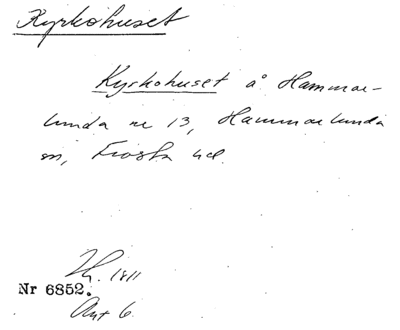 Kyrkohuset
Kyrkohuset å Hammar-
lunda nr 13, Hammarlunda
sn, Frosta hd.
1811
Nr 6852.
Avt 6.